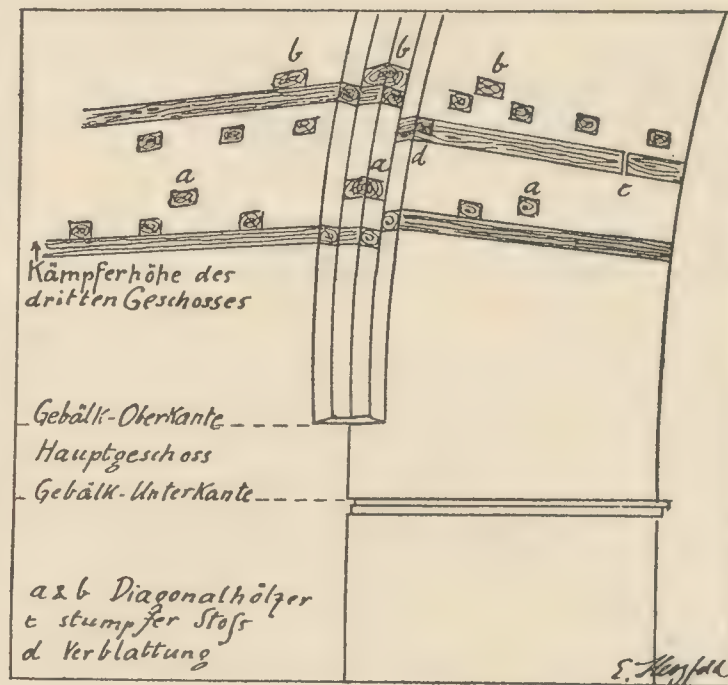 b
b
b
a
a
d
c
a
Kämpferhöhe des
dritten Geschosses
Gebälk-Oberkante
Hauptgeschoss
Gebälk-Unterkante
a & b Diagonalhölzer
c stumpfer Stoß
d Verblattung
E. Herzfeld